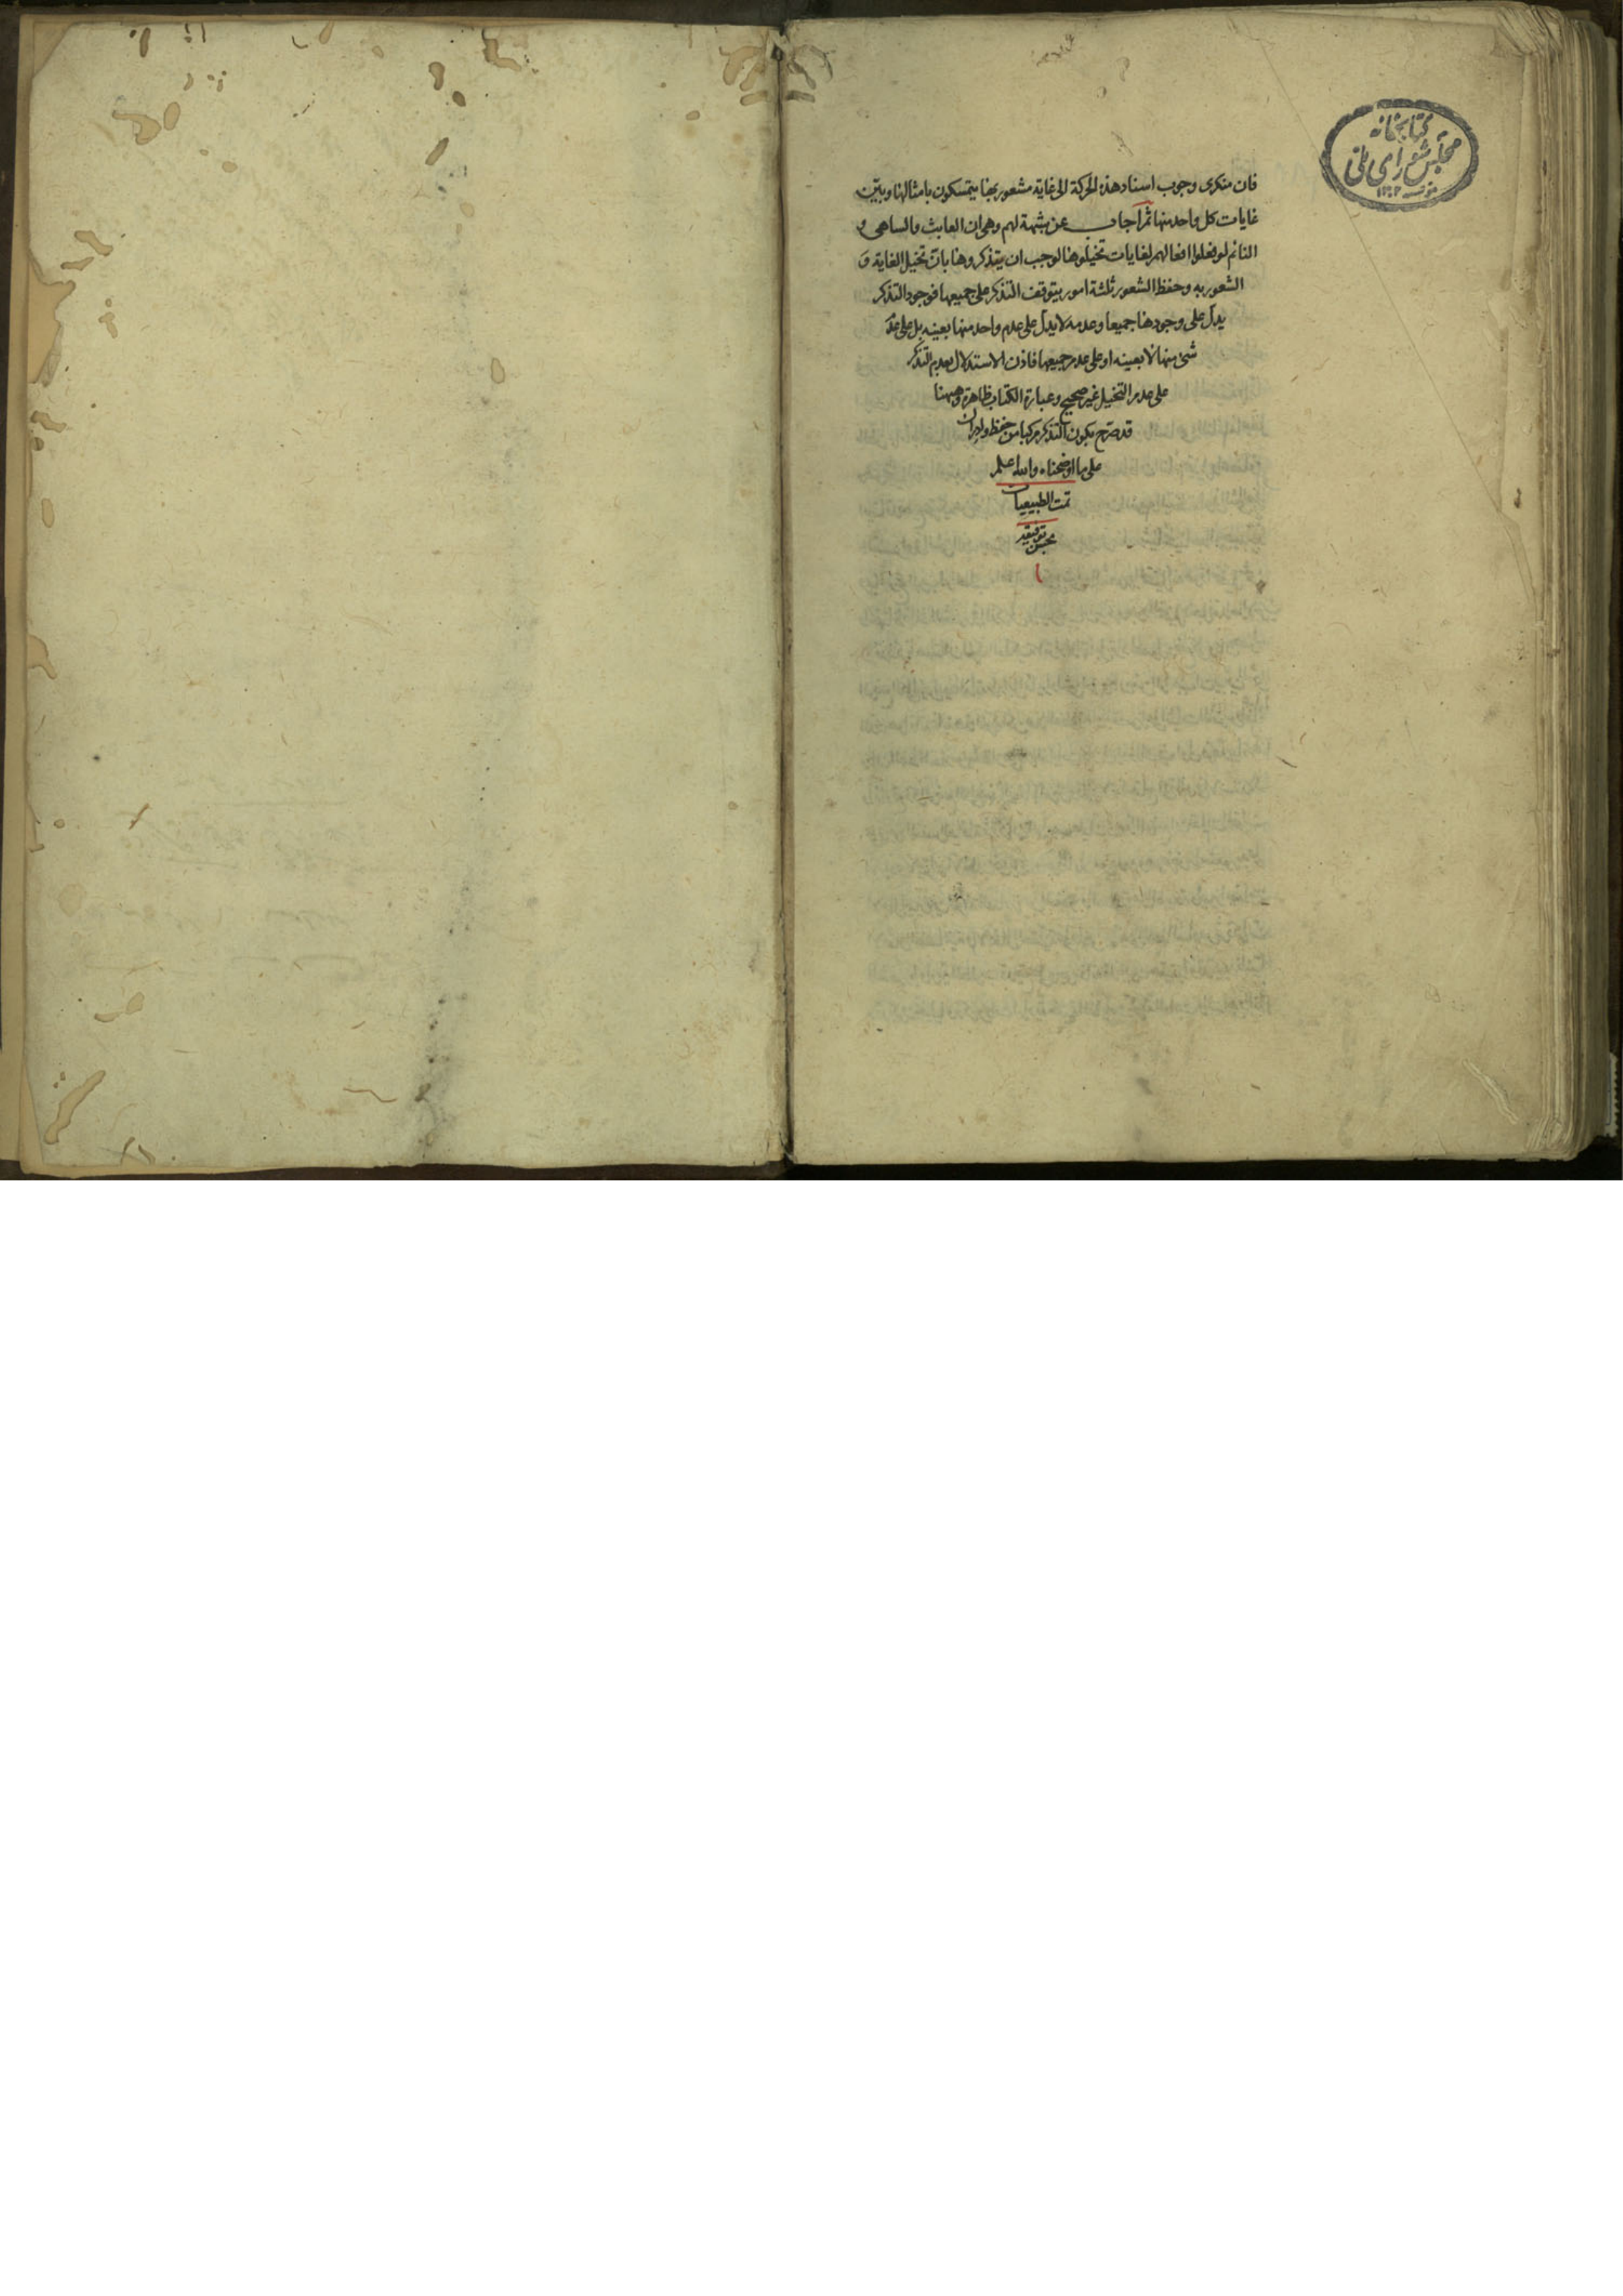 كتابخانه
مجلس شورای ملی
۱۳۰۲
فان منكرى وجوب اسناد هذه الحركة الى غاية مشعور بها يتمسكون بامثالها وبيّن
غايات كل واحد منها ثم اجاب عن شبهة لهم وهى ان العابث والساهى و
النائم لو فعلوا افعالهم لغايات تخيلوها لوجب ان يتذكروها بانّ تخيل الغاية و
الشعور به وحفظ الشعور ثلثة امور يتوقف التذكر على جميعها فوجود التذكر
يدلّ على وجودها جميعا وعدمه لا يدلّ على عدم واحد منها بعينه بل على عدم
شئ منها لا بعينه او على عدم جميعها فاذن الاستدلال بعدم التذكر
على عدم التخيل غير صحيح وعبارة الكتاب ظاهرة وههنا
قد صرّح بكون التذكر مركبا من حفظ وادراك
على ما اوضحناه والله اعلم
تمت الطبيعيات
بحسن توفيقه